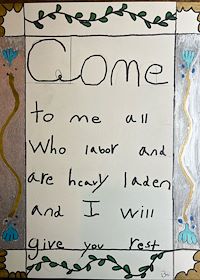 Come
to me all
Who labor and
are heavy laden
and I will
give you rest